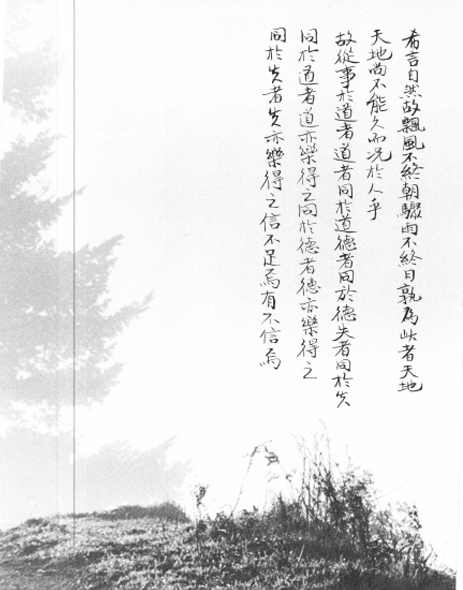 希言自然故飄風不終朝驟雨不終日孰為此者天地
天地尚不能久而況於人乎
故從事於道者道者同於道德者同於德失者同於失
同於道者道亦樂得之同於德者德亦樂得之
同於失者失亦樂得之信不足焉有不信焉